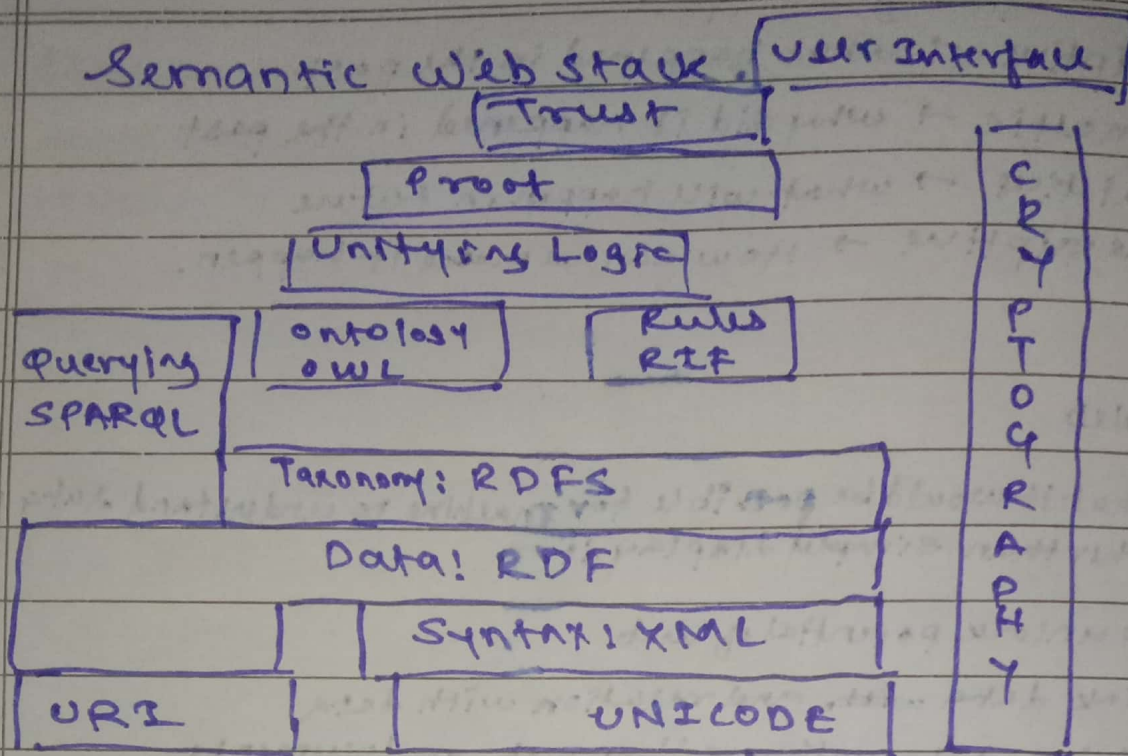 Semantic Web Stack.
User Interface
Trust
Proof
Unifying Logic
Querying
SPARQL
Ontology
OWL
Rules
RIF
Taxonomy: RDFS
Data: RDF
Syntax: XML
URI
UNICODE
C
R
Y
P
T
O
G
R
A
P
H
Y